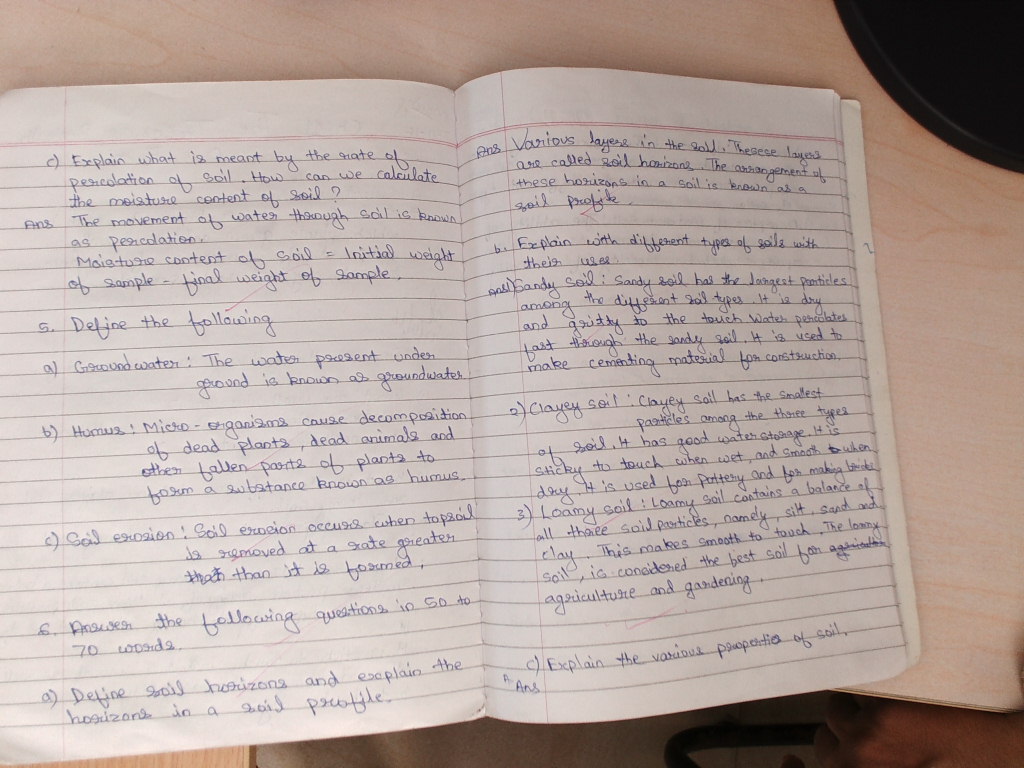 c) Explain what is meant by the rate of
percolation of soil. How can we calculate
the moisture content of soil?
Ans The movement of water through soil is known
as percolation.
Moisture content of soil = Initial weight
of sample - final weight of sample.
5. Define the following
a) Groundwater: The water present under
ground is known as groundwater.
b) Humus: Micro-organisms cause decomposition
of dead plants, dead animals and
other fallen parts of plants to
form a substance known as humus.
c) Soil erosion: Soil erosion occurs when topsoil
is removed at a rate greater
that than it is formed.
6. Answer the following questions in 50 to
70 words.
a) Define soil horizons and explain the
horizons in a soil profile.
Ans Various layers in the soil. Thesese layers
are called soil horizons. The arrangement of
these horizons in a soil is known as a
soil profile.
b. Explain with different types of soils with
their uses.
Ans 1) Sandy soil: Sandy soil has the largest particles
among the different soil types. It is dry
and gritty to the touch. Water percolates
fast through the sandy soil. It is used to
make cementing material for construction.
2) Clayey soil: Clayey soil has the smallest
particles among the three types
of soil. It has good water storage. It is
sticky to touch when wet, and smooth when
dry. It is used for pottery and for making bricks
3) Loamy soil: Loamy soil contains a balance of
all three soil particles, namely, silt, sand and
clay. This makes smooth to touch. The loamy
soil, is considered the best soil for
agriculture and gardening.
c) Explain the various properties of soil.
Ans